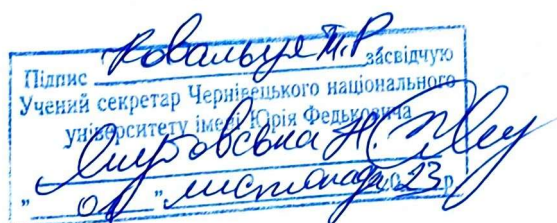 Підпис Ковальчук М.Р засвідчую
Учений секретар Чернівецького національного
університету імені Юрія Федьковича
Якубовська Н.
" 01 " листопада 2023 р